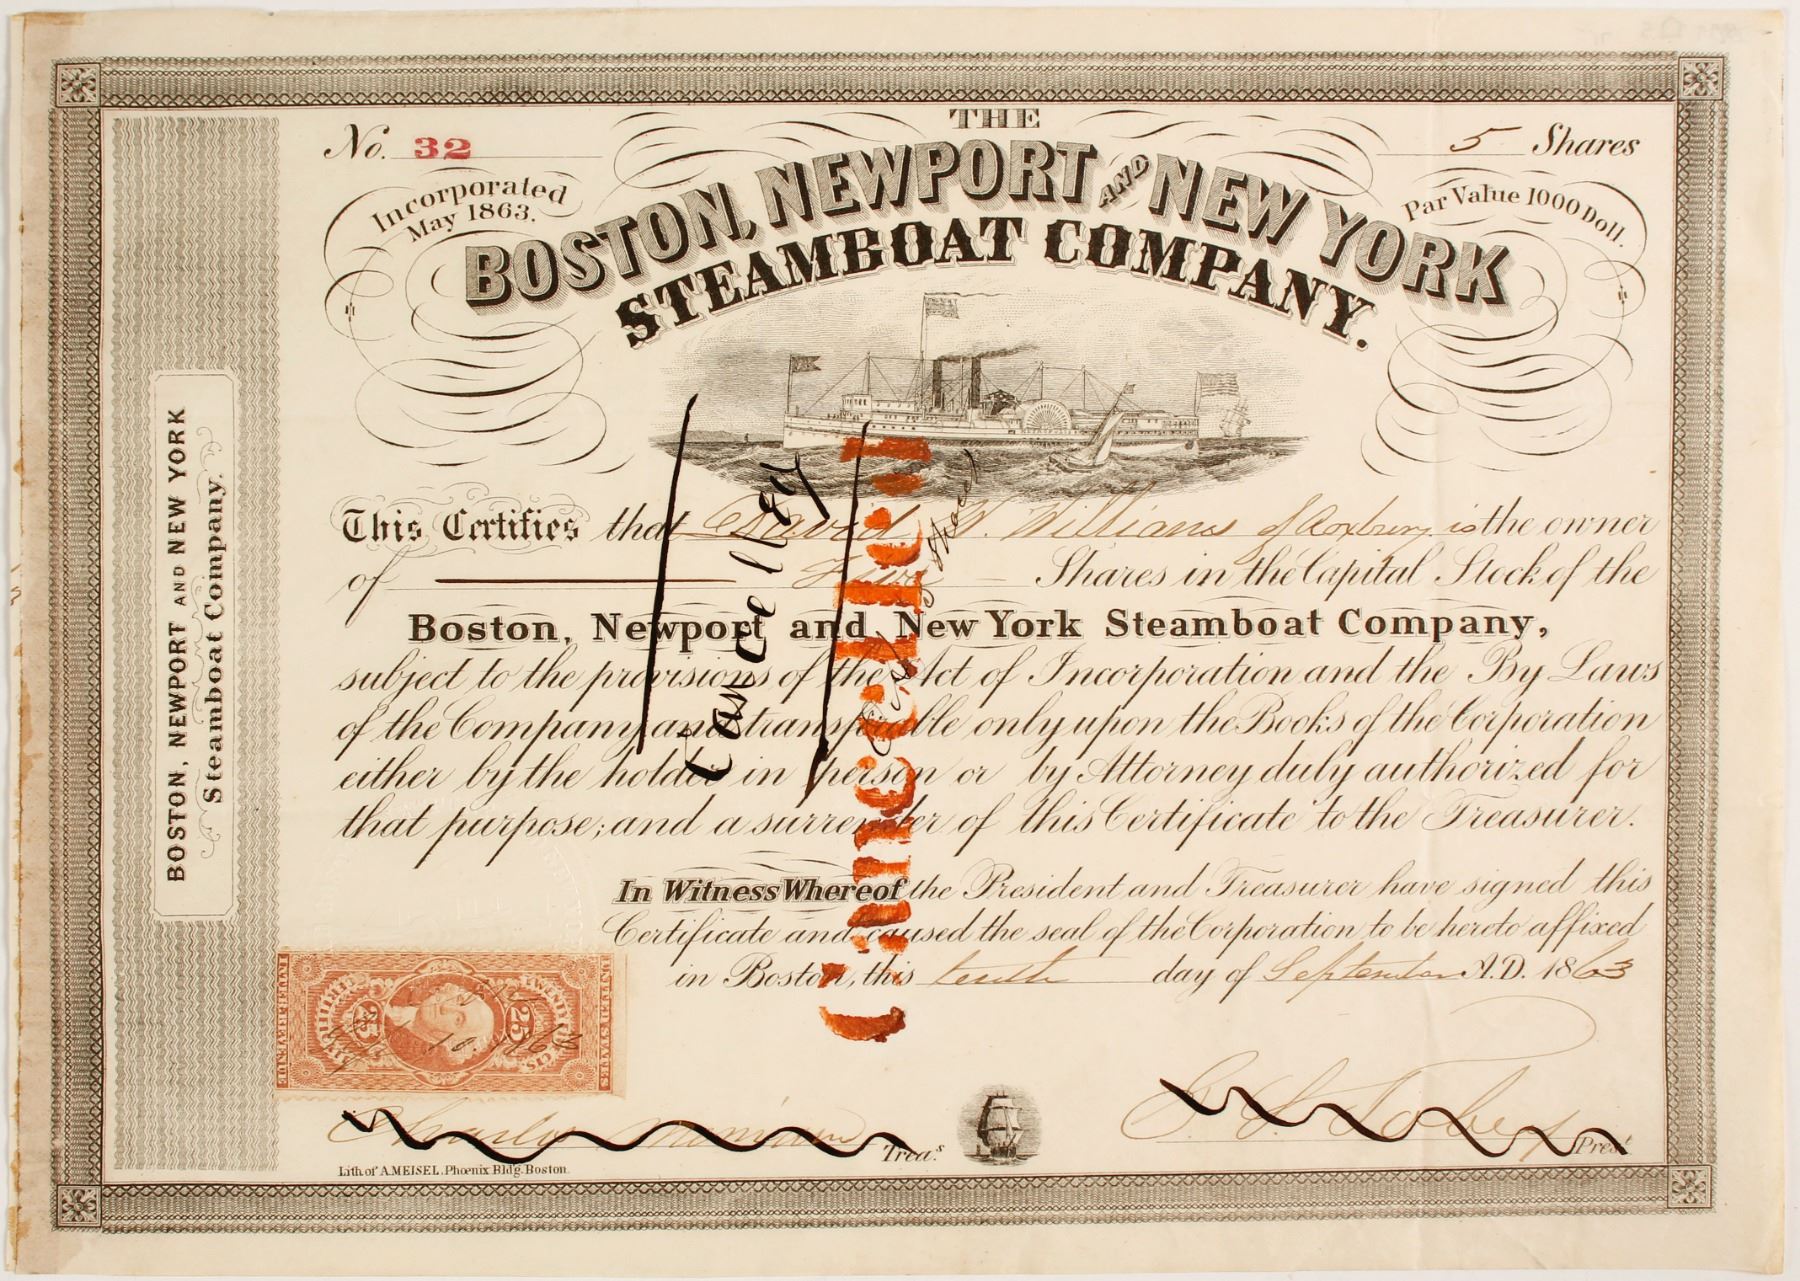 No. 32
THE
5 Shares
Incorporated
May 1863.
Par Value 1000 Doll.
BOSTON, NEWPORT AND NEW YORK
STEAMBOAT COMPANY.
BOSTON, NEWPORT AND NEW YORK
Steamboat Company.
This Certifies that David W. Williams of Roxbury is the owner
of Five Shares in the Capital Stock of the
Boston, Newport and New York Steamboat Company,
subject to the provisions of the Act of Incorporation and the By Laws
of the Company and transferable only upon the Books of the Corporation
either by the holder in person or by Attorney duly authorized for
that purpose; and a surrender of this Certificate to the Treasurer.
In Witness Whereof the President and Treasurer have signed this
Certificate and caused the seal of the Corporation to be hereto affixed
in Boston, this tenth day of September A.D. 1863
Cancelled
Cancelled
INTER. REVENUE
UNITED STATES
25
25
CTS.
10. 1863
Charles Treas.
G. S. Tobey Prest
Lith. of A. MEISEL, Phœnix Bldg. Boston.